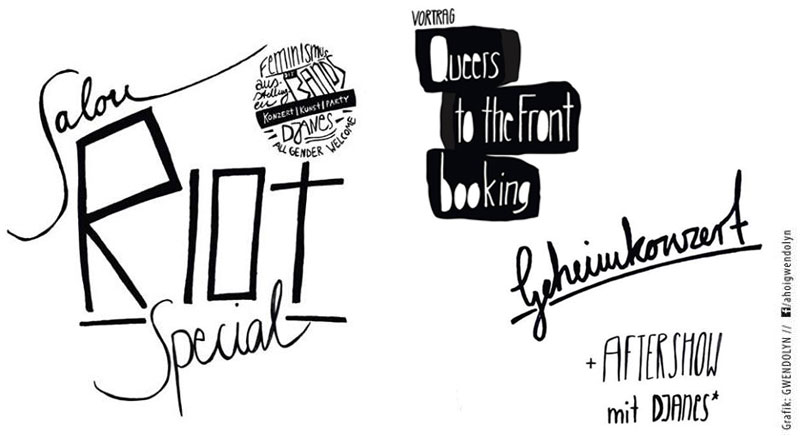 Salon
RIOT
Special
FEMINISMUS
aus-
stellung
en
BANDS
KONZERT | KUNST | PARTY
DJANES
ALL GENDER WELCOME
VORTRAG
Queers
to the Front
booking
Geheimkonzert
+ AFTERSHOW
mit DJANES*
Grafik: GWENDOLYN // f/ahoigwendolyn